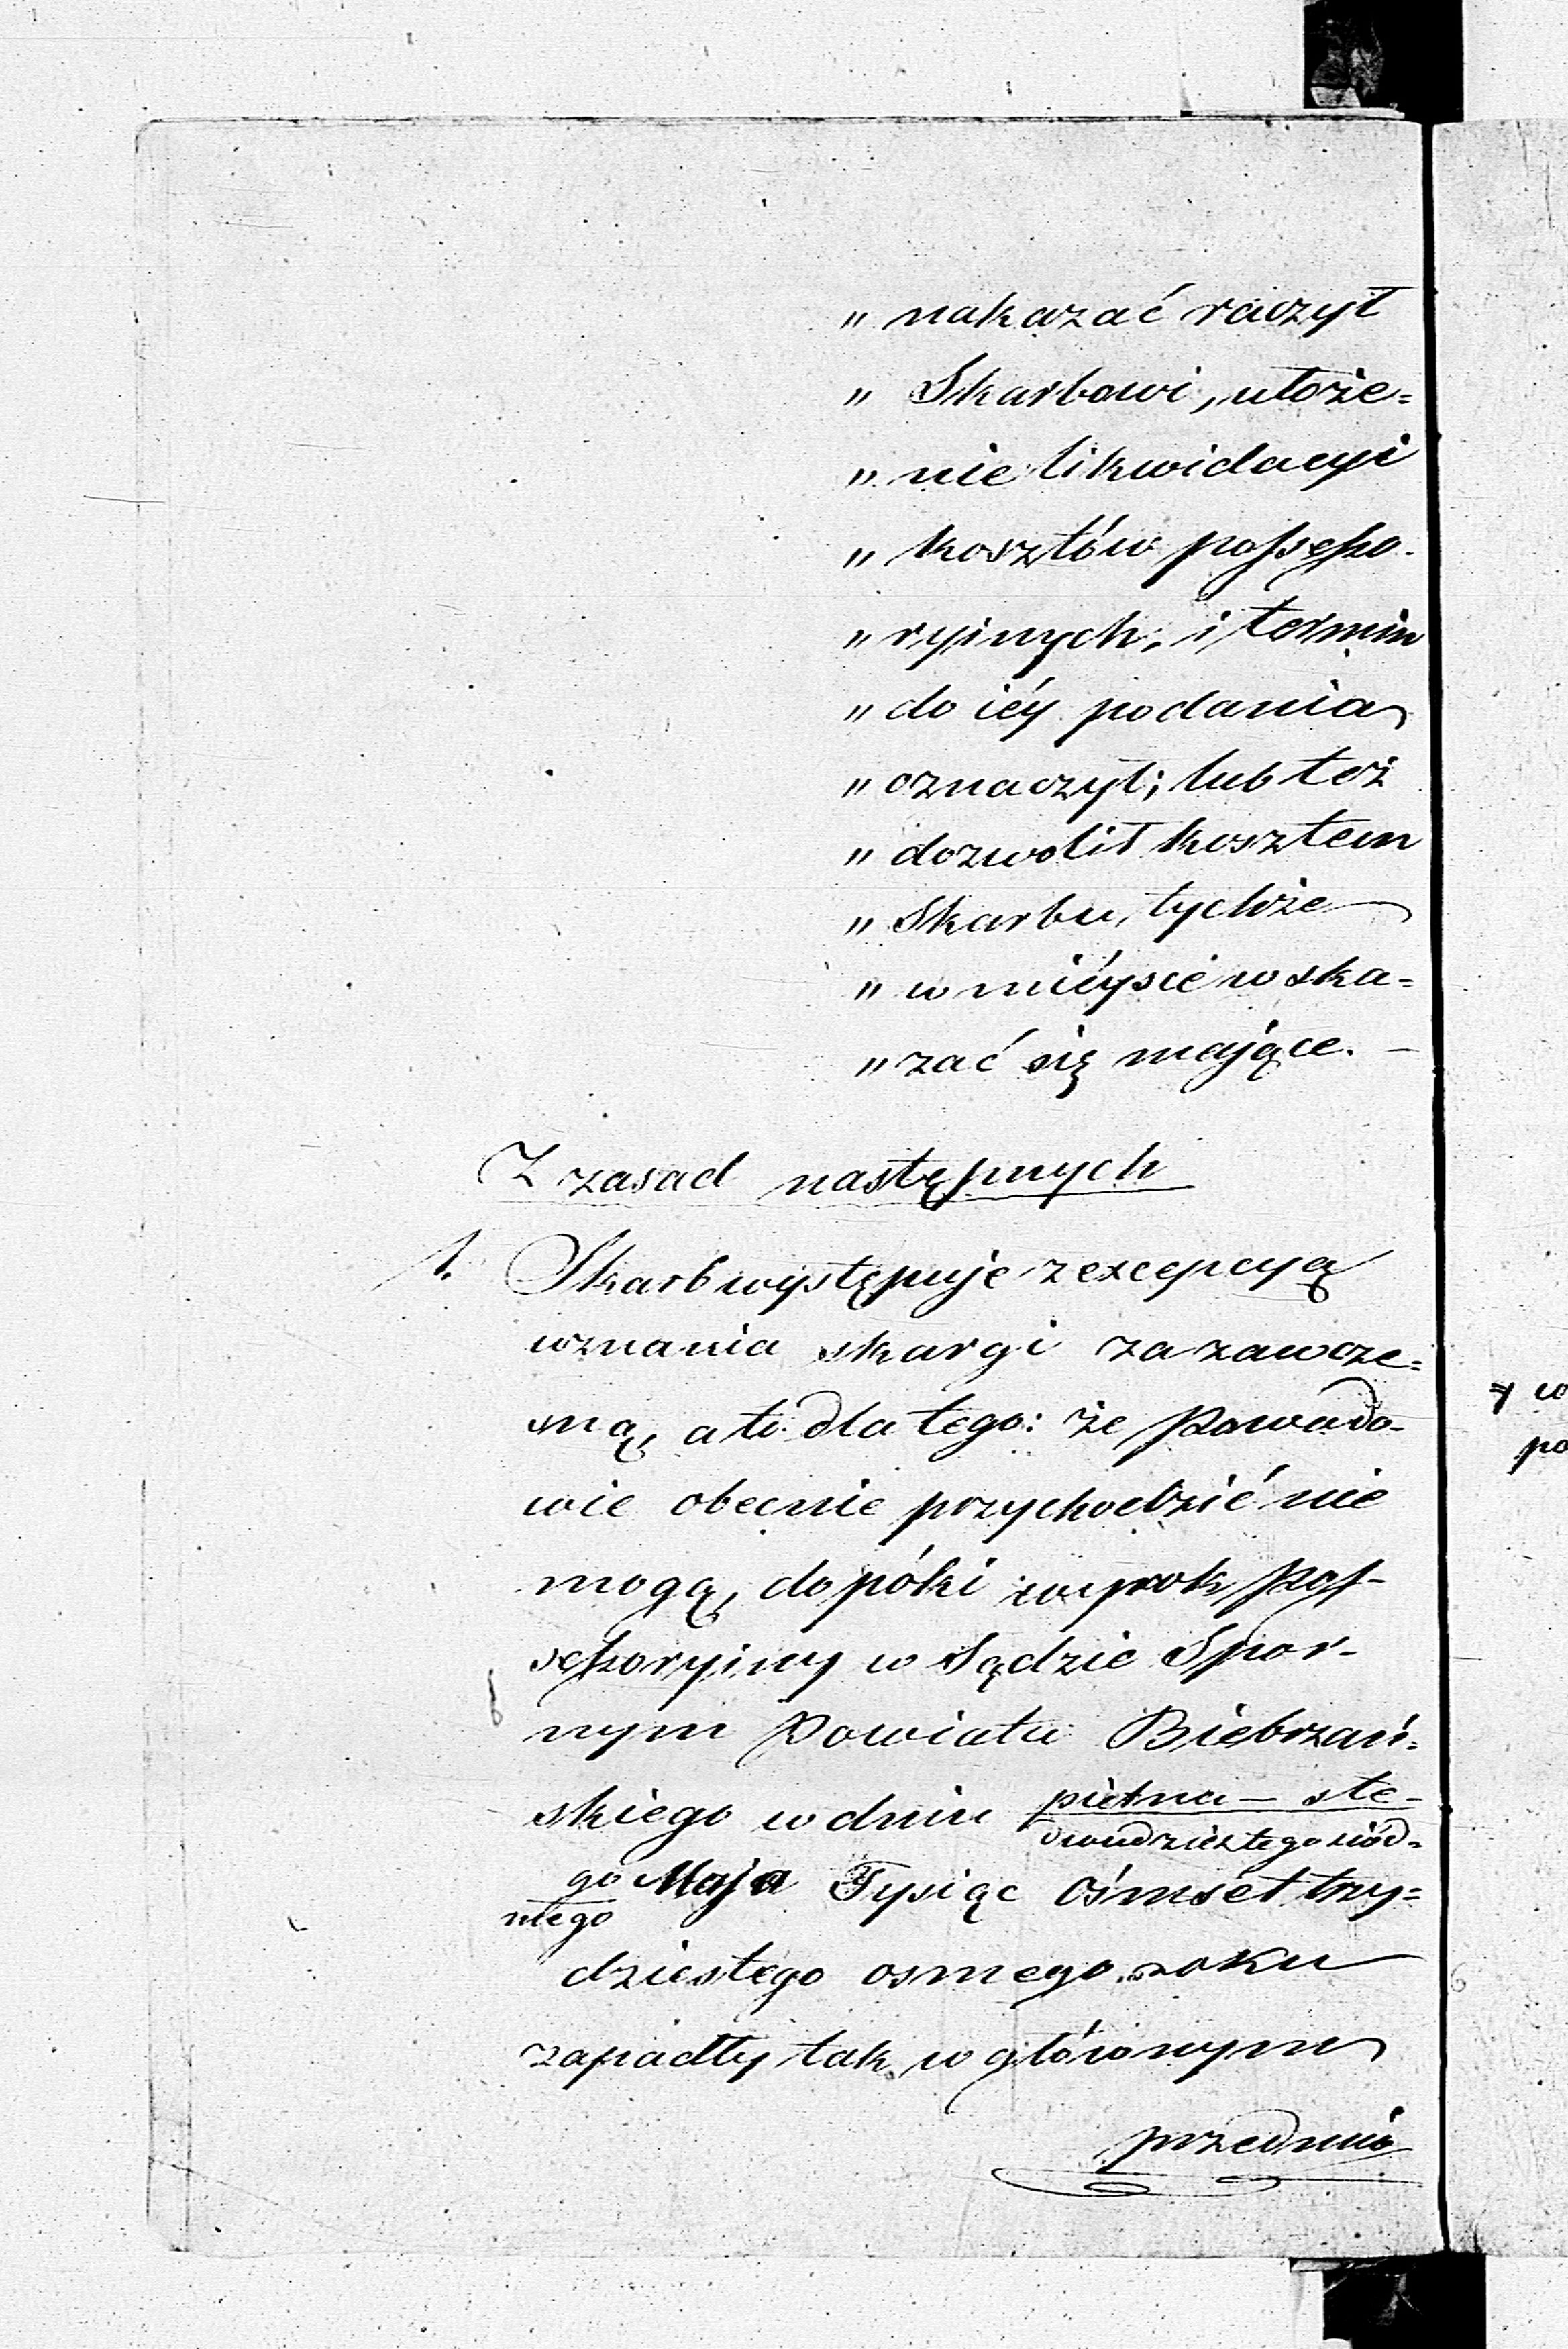 „ nakazać raczył
„ Skarbowi, ułoże=
„ nie likwidacyi
„ kosztów possesso-
„ ryinych, i termin
„ do iéy podania
„ oznaczył; lub też
„ dozwolił kosztem
„ Skarbu, tychże
„ w miéyscé wska=
„ zać się mające. –
Z zasad następnych
1. Skarb występuje z excepcyą
uznania skargi za zawcze=
sną, a to dla tego: że Powodo-
wie obecnie przychodzić nie
mogą, dopóki wyrok Pos-
sessoryiny w Sądzie Spor-
nym Powiatu Biebrzań=
skiego w dniu piętna – ste-
dwudziestego siód=
go Maja Tysiąc Ośmset trzy=
mego
dziestego osmego roku
zapadły tak w głównym
przedmio
w
po